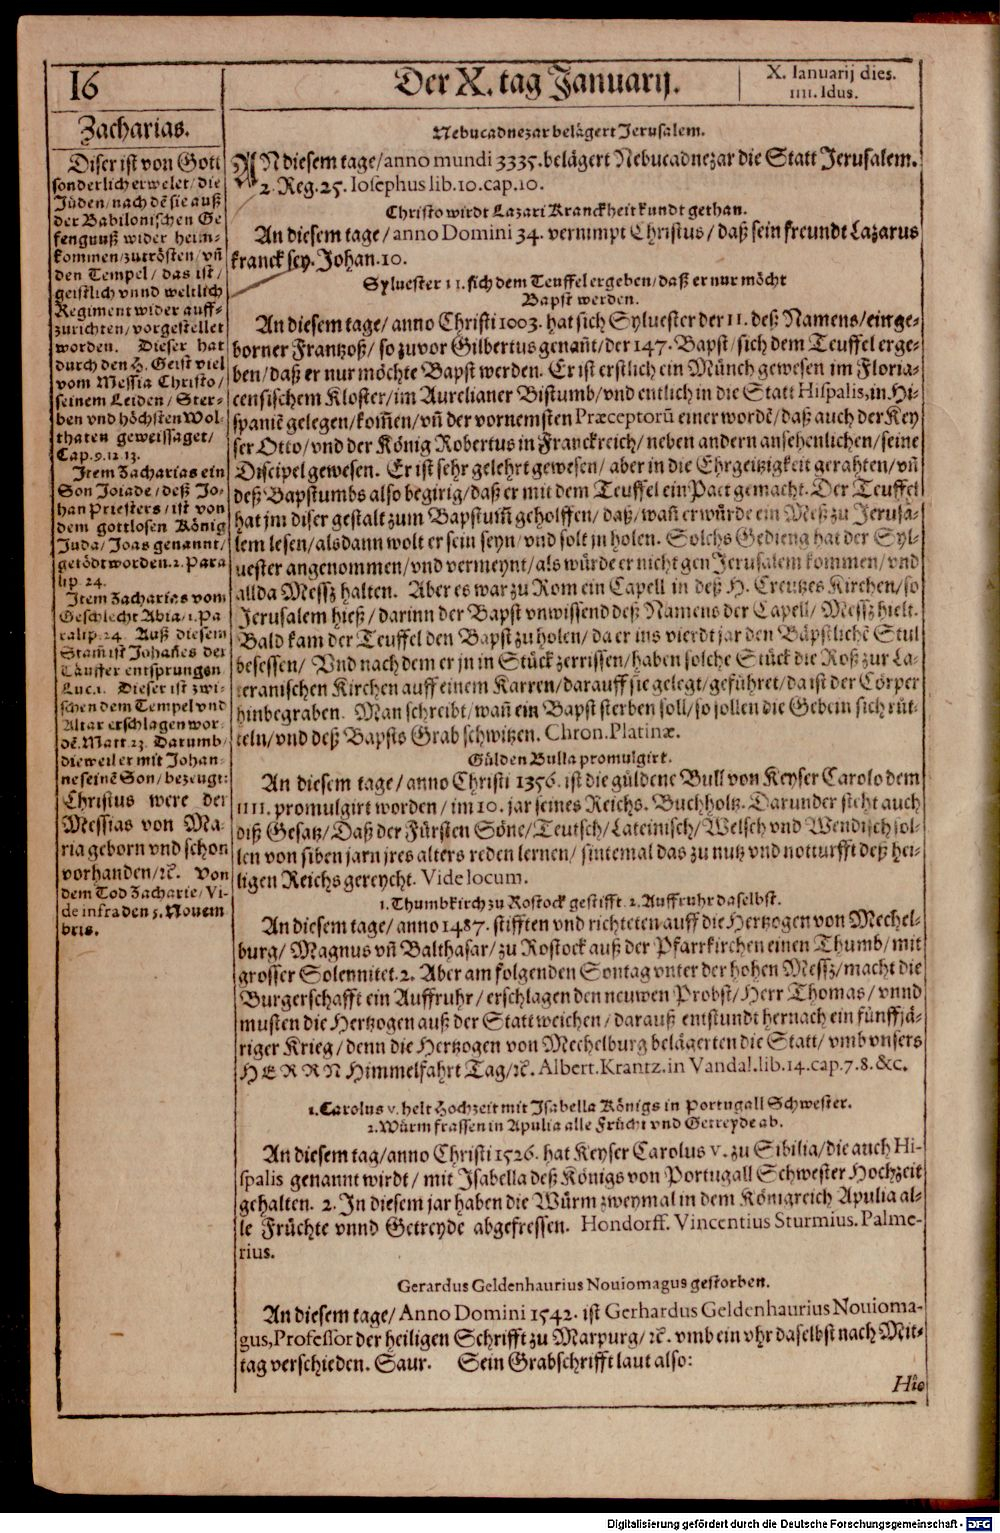 16
Der X. tag Januarij.
X. Ianuarij dies.
IIII. Idus.
Zacharias.
Diser ist von Gott
sonderlich erwelet/ die
Jüden/ nach dē sie auß
der Babilonischen Ge
fengnuß wider heim-
kommen/ zutrösten/ vñ
den Tempel/ das ist/
geistlich vnnd weltlich
Regiment wider auff-
zurichten/ vorgestellet
worden. Dieser hat
durch den H. Geist viel
vom Messia Christo/
seinem Leiden/ Ster-
ben vnd höchsten Wol-
thaten geweissaget/
Cap. 9. 12. 13.
Item Zacharias ein
Son Joiade/ deß Jo-
han Priesters/ ist von
dem gottlosen König
Juda/ Joas genannt/
getödt worden. 2. Para
lip. 24.
Item Zacharias vom
Geschlecht Abia/ 1. Pa
ralip. 24. Auß diesem
Stam̃ ist Johañes der
Täuffer entsprungen
Luc. 1. Dieser ist zwi-
schen dem Tempel vnd
Altar erschlagen wor-
dē. Matt. 23. Darumb/
dieweil er mit Johan-
ne seinē Son/ bezeugt:
Christus were der
Messias von Ma-
ria geborn vnd schon
vorhanden/ ꝛc. Von
dem Tod Zacharie/ Vi-
de infra den 5. Novem
bris.
Nebucadnezar belägert Jerusalem.
AN diesem tage/ anno mundi 3335. belägert Nebucadnezar die Statt Jerusalem.
2. Reg. 25. Iosephus lib. 10. cap. 10.
Christo wirdt Lazari Kranckheit kundt gethan.
An diesem tage/ anno Domini 34. vernimpt Christus/ daß sein freundt Lazarus
kranck sey. Johan. 10.
Syluester II. sich dem Teuffel ergeben/ daß er nur möcht
Bapst werden.
An diesem tage/ anno Christi 1003. hat sich Syluester der II. deß Namens/ ein ge-
borner Frantzoß/ so zuvor Gilbertus genañt/ der 147. Bapst/ sich dem Teuffel erge-
ben/ daß er nur möchte Bapst werden. Er ist erstlich ein Münch gewesen im Floria-
censischem Kloster/ im Aurelianer Bistumb/ vnd entlich in die Statt Hispalis, in Hi-
spaniē gelegen/ kom̃en/ vñ der vornemsten Præceptorū einer wordē/ daß auch der Key
ser Otto/ vnd der König Robertus in Franckreich/ neben andern ansehenlichen/ seine
Discipel gewesen. Er ist sehr gelehrt gewesen/ aber in die Ehrgeitzigkeit gerahten/ vñ
deß Bapstumbs also begirig/ daß er mit dem Teuffel ein Pact gemacht. Der Teuffel
hat jm diser gestalt zum Bapstum̃ geholffen/ daß/ wañ er würde ein Meß zu Jerusa-
lem lesen/ alsdann wolt er sein seyn/ vnd solt jn holen. Solchs Gedieng hat der Syl-
uester angenommen/ vnd vermeynt/ als würde er nicht gen Jerusalem kommen/ vnd
allda Messz halten. Aber es war zu Rom ein Capell in deß H. Creutzes Kirchen/ so
Jerusalem hieß/ darinn der Bapst vnwissend deß Namens der Capell/ Messz hielt.
Bald kam der Teuffel den Bapst zu holen/ da er ins vierdt jar den Bäpstlichē Stul
besessen/ Vnd nach dem er jn in Stück zerrissen/ haben solche Stück die Roß zur La-
teranischen Kirchen auff einem Karren/ darauff sie gelegt/ geführet/ da ist der Cörper
hinbegraben. Man schreibt/ wañ ein Bapst sterben soll/ so sollen die Gebein sich rüt-
teln/ vnd deß Bapsts Grab schwitzen. Chron. Platinæ.
Gülden Bulla promulgirt.
An diesem tage/ anno Christi 1356. ist die güldene Bull von Keyser Carolo dem
IIII. promulgirt worden/ im 10. jar seines Reichs. Buchholtz. Darunder steht auch
diß Gesatz/ Daß der Fürsten Söne/ Teutsch/ Lateinisch/ Welsch vnd Wendisch sol-
len von siben jarn jres alters reden lernen/ sintemal das zu nutz vnd notturfft deß hei-
ligen Reichs gereycht. Vide locum.
1. Thumbkirch zu Rostock gestifft. 2. Auffruhr daselbst.
An diesem tage/ anno 1487. stifften vnd richteten auff die Hertzogen von Mechel-
burg/ Magnus vñ Balthasar/ zu Rostock auß der Pfarrkirchen einen Thumb/ mit
grosser Solennitet. 2. Aber am folgenden Sontag vnter der hohen Messz/ macht die
Burgerschafft ein Auffruhr/ erschlagen den neuwen Probst/ Herr Thomas/ vnnd
musten die Hertzogen auß der Statt weichen/ darauß entstundt hernach ein fünffjä-
riger Krieg/ denn die Hertzogen von Mechelburg belägerten die Statt/ vmb vnsers
HERRN Himmelfahrt Tag/ ꝛc. Albert. Krantz. in Vandal. lib. 14. cap. 7. 8. &c.
1. Carolus V. helt Hochzeit mit Isabella Königs in Portugall Schwester.
2. Würm frassen in Apulia alle Frücht vnd Getreyde ab.
An diesem tag/ anno Christi 1526. hat Keyser Carolus V. zu Sibilia/ die auch Hi-
spalis genannt wirdt/ mit Isabella deß Königs von Portugall Schwester Hochzeit
gehalten. 2. In diesem jar haben die Würm zweymal in dem Königreich Apulia al-
le Früchte vnnd Getreyde abgefressen. Hondorff. Vincentius Sturmius. Palme-
rius.
Gerardus Geldenhaurius Nouiomagus gestorben.
An diesem tage/ Anno Domini 1542. ist Gerhardus Geldenhaurius Nouioma-
gus, Professor der heiligen Schrifft zu Marpurg/ ꝛc. vmb ein vhr daselbst nach Mit-
tag verschieden. Saur. Sein Grabschrifft laut also:
Hîc
Digitalisierung gefördert durch die Deutsche Forschungsgemeinschaft - DFG